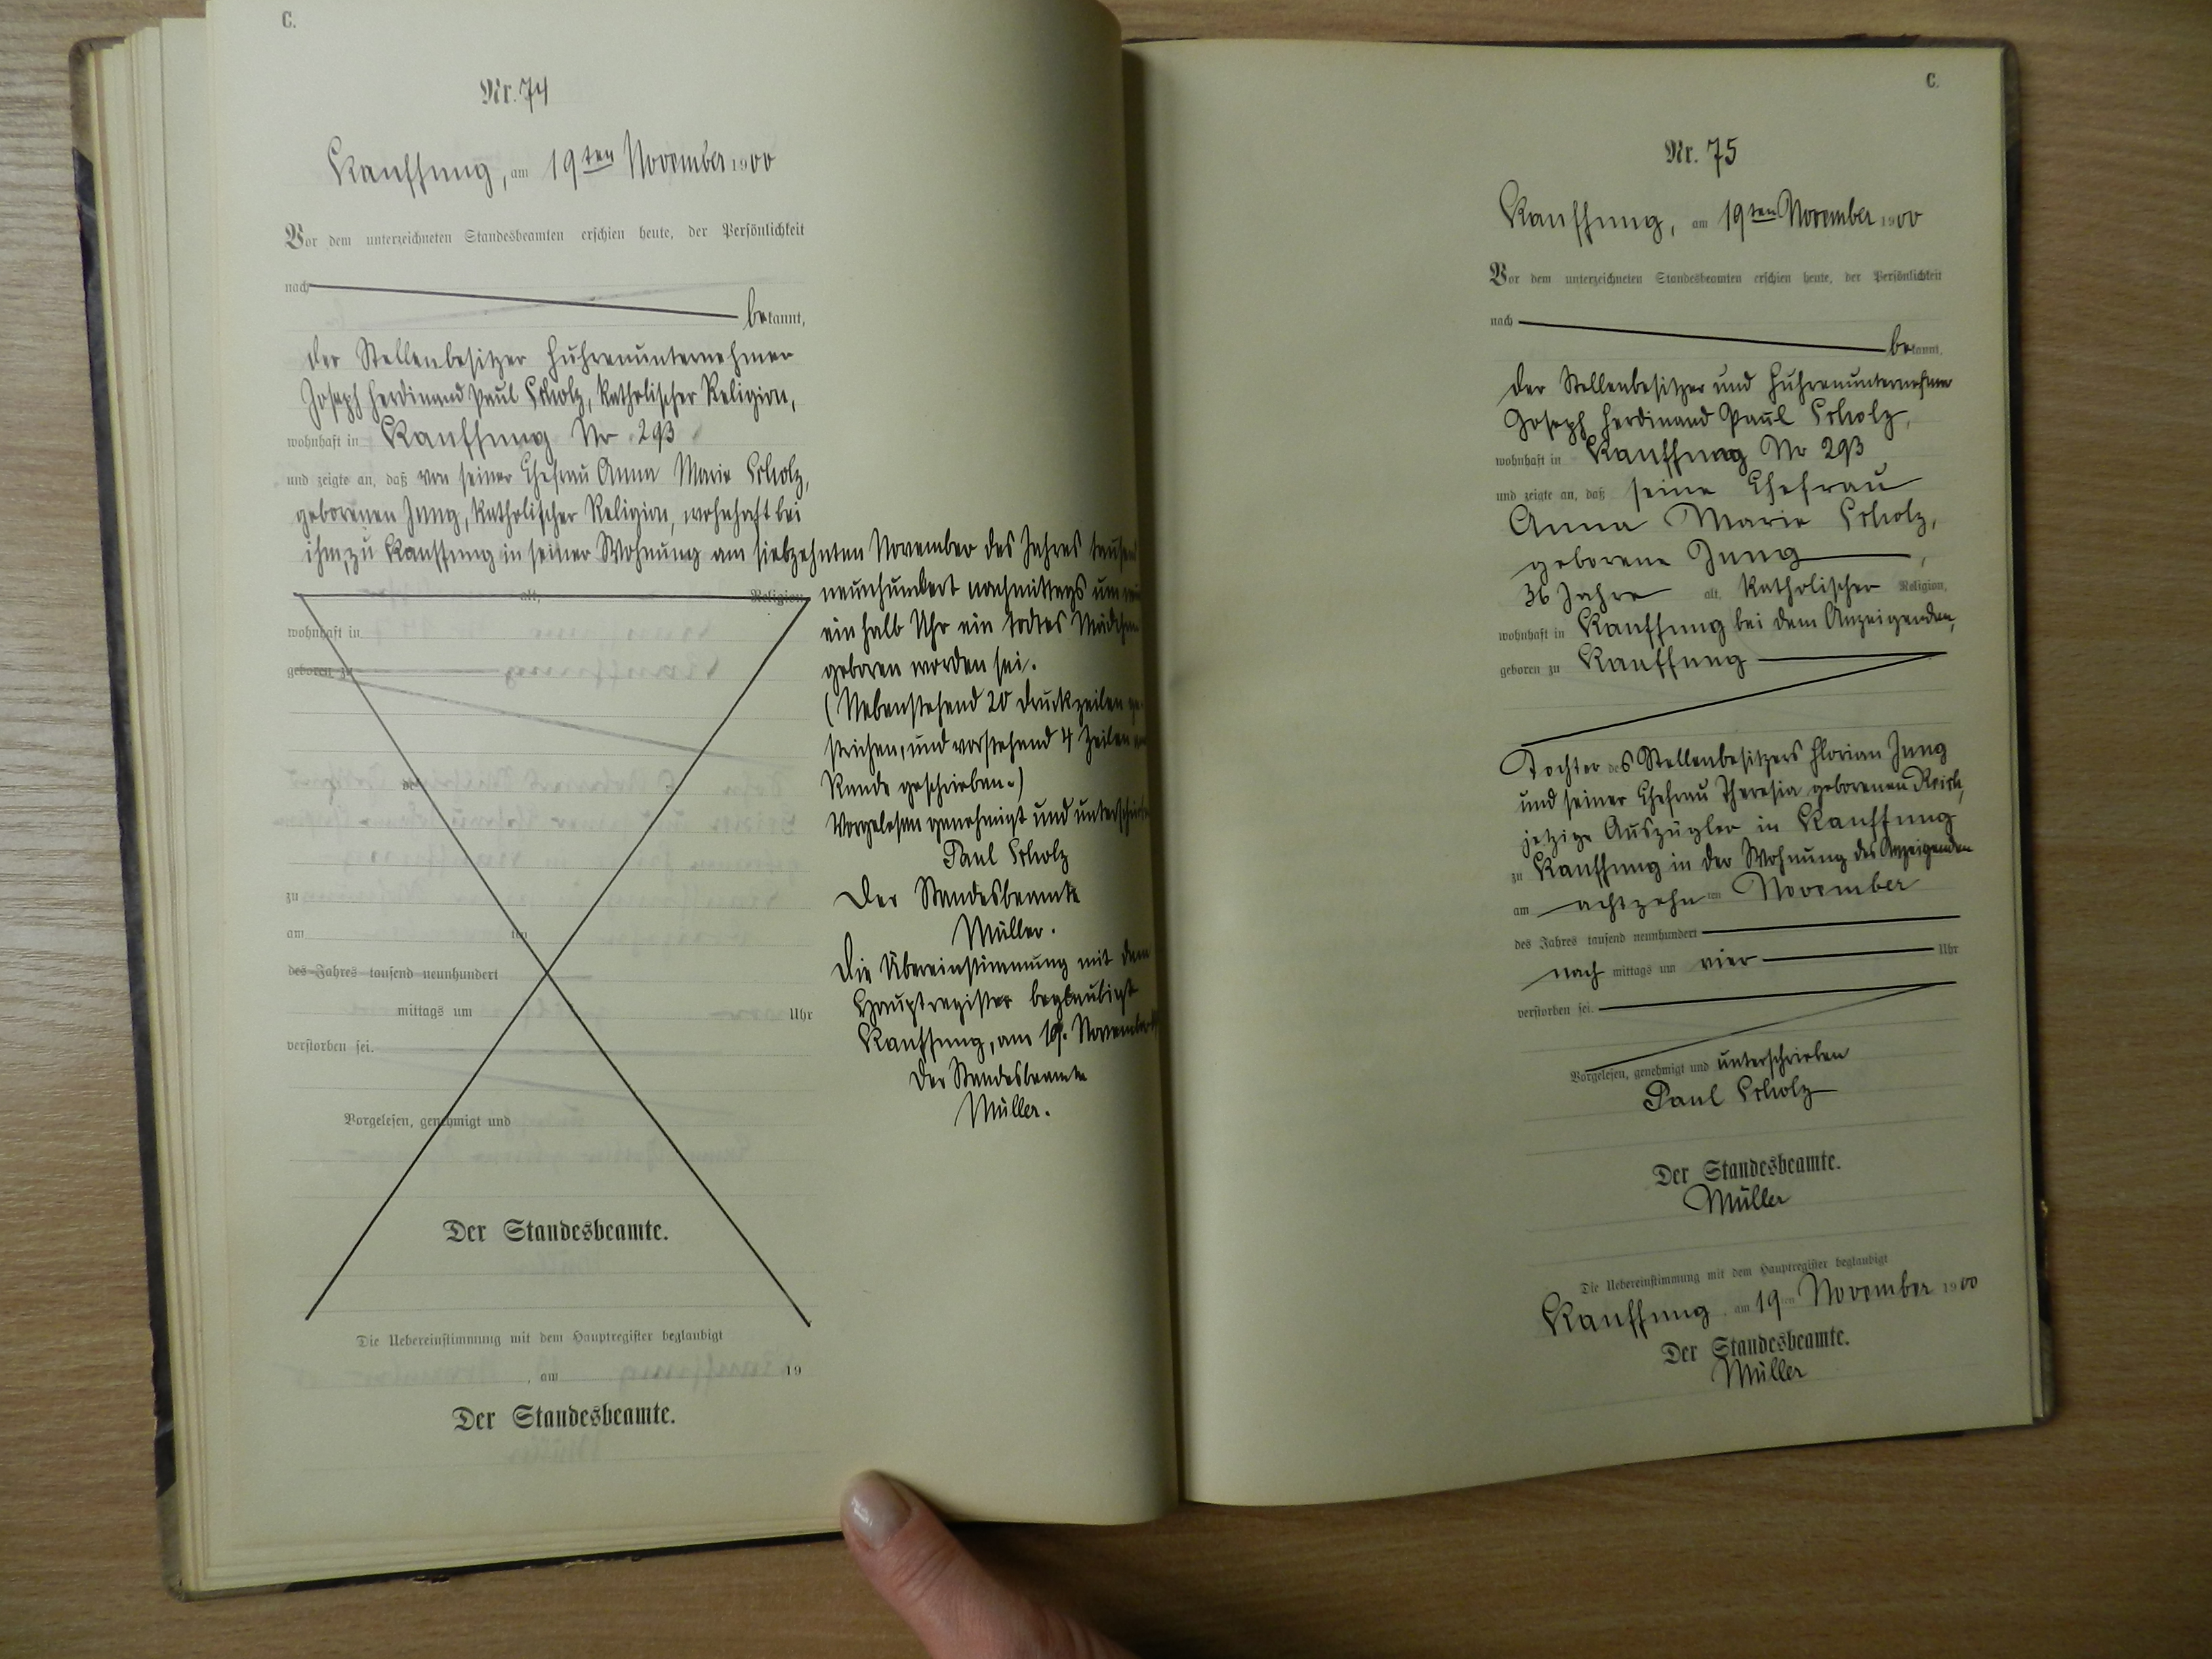 C.
Nr. 74
Kauffung, am 19ten November 1900
Vor dem unterzeichneten Standesbeamten erschien heute, der Persönlichkeit
nach
bekannt,
der Stellenbesitzer Fuhrenunternehmer
Joseph Ferdinand Paul Scholz, katholischer Religion,
wohnhaft in Kauffung Nr 293
und zeigte an, daß von seiner Ehefrau Anna Marie Scholz,
geborenen Jung, katholischer Religion, wohnhaft bei
ihm, zu Kauffung in seiner Wohnung am siebzehnten November des Jahres tausend
neunhundert nachmittags um
ein halb Uhr ein todtes Mädchen
geboren worden sei.
(Nebenstehend 20 Druckzeilen ge-
strichen, und vorstehend 4 Zeilen am
Rande geschrieben.)
Vorgelesen genehmigt und unterschrieben
Paul Scholz
Der Standesbeamte
Müller.
Die Übereinstimmung mit dem
Hauptregister beglaubigt
Kauffung, am 19. November
Der Standesbeamte
Müller.
alt, Religion,
wohnhaft in
geboren zu
de
zu
am ten
des Jahres tausend neunhundert
mittags um Uhr
verstorben sei.
Vorgelesen, genehmigt und
Der Standesbeamte.
Die Uebereinstimmung mit dem Hauptregister beglaubigt
, am 19
Der Standesbeamte.
C.
Nr. 75
Kauffung, am 19ten November 1900
Vor dem unterzeichneten Standesbeamten erschien heute, der Persönlichkeit
nach
bekannt,
der Stellenbesitzer und Fuhrenunternehmer
Joseph Ferdinand Paul Scholz,
wohnhaft in Kauffung Nr 293
und zeigte an, daß seine Ehefrau
Anna Marie Scholz,
geborene Jung,
36 Jahre alt, katholischer Religion,
wohnhaft in Kauffung bei dem Anzeigenden,
geboren zu Kauffung
Tochter des Stellenbesitzers Florian Jung
und seiner Ehefrau Theresia geborenen Reich,
jetzige Auszügler in Kauffung
zu Kauffung in der Wohnung des Anzeigenden
am achtzehnten November
des Jahres tausend neunhundert
nach mittags um vier Uhr
verstorben sei.
Vorgelesen, genehmigt und unterschrieben
Paul Scholz
Der Standesbeamte.
Müller
Die Uebereinstimmung mit dem Hauptregister beglaubigt
Kauffung am 19ten November 1900
Der Standesbeamte.
Müller